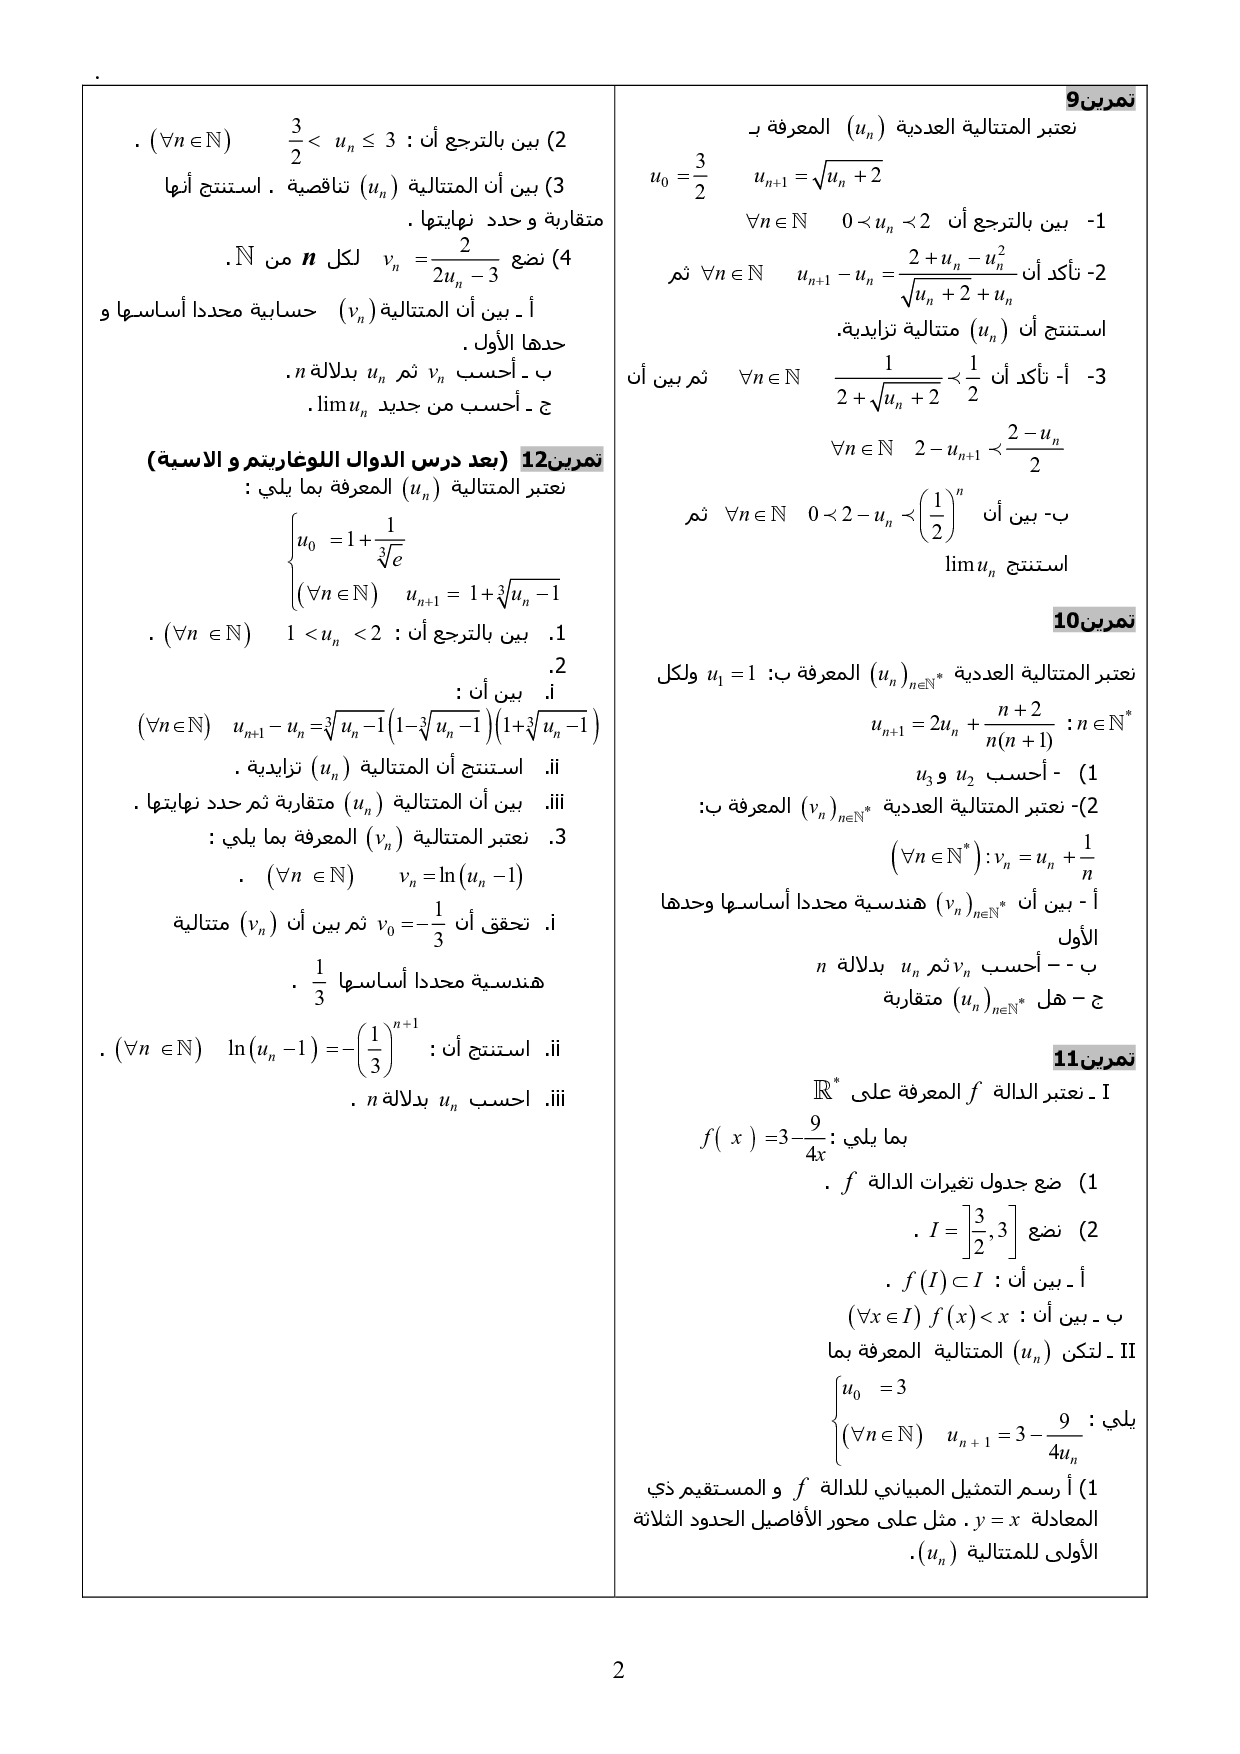 .
تمرين9
نعتبر المتتالية العددية (u_n) المعرفة بـ
u_0 = 3/2   u_{n+1} = √(u_n + 2)
1- بين بالترجع أن 0 ≺ u_n ≺ 2   ∀n ∈ ℕ
2- تأكد أن u_{n+1} − u_n = (2 + u_n − u_n^2)/(√(u_n + 2) + u_n)   ∀n ∈ ℕ ثم
استنتج أن (u_n) متتالية تزايدية.
3- أ- تأكد أن 1/(2 + √(u_n + 2)) ≺ 1/2   ∀n ∈ ℕ ثم بين أن
∀n ∈ ℕ   2 − u_{n+1} ≺ (2 − u_n)/2
ب- بين أن 0 ≺ 2 − u_n ≺ (1/2)^n   ∀n ∈ ℕ ثم
استنتج lim u_n
تمرين10
نعتبر المتتالية العددية (u_n)_{n∈ℕ*} المعرفة ب: u_1 = 1 ولكل
n ∈ ℕ* : u_{n+1} = 2u_n + (n + 2)/(n(n + 1))
1) - أحسب u_2 و u_3
2)- نعتبر المتتالية العددية (v_n)_{n∈ℕ*} المعرفة ب:
(∀n ∈ ℕ*) : v_n = u_n + 1/n
أ - بين أن (v_n)_{n∈ℕ*} هندسية محددا أساسها وحدها
الأول
ب - – أحسب v_n ثم u_n بدلالة n
ج – هل (u_n)_{n∈ℕ*} متقاربة
تمرين11
I ـ نعتبر الدالة f المعرفة على ℝ*
بما يلي : f( x ) = 3 − 9/(4x)
1) ضع جدول تغيرات الدالة f .
2) نضع I = ]3/2, 3] .
أ ـ بين أن : f(I) ⊂ I .
ب ـ بين أن : (∀x ∈ I) f(x) < x
II ـ لتكن (u_n) المتتالية المعرفة بما
يلي : { u_0 = 3
(∀n ∈ ℕ)   u_{n+1} = 3 − 9/(4u_n)
1) أ رسم التمثيل المبياني للدالة f و المستقيم ذي
المعادلة y = x . مثل على محور الأفاصيل الحدود الثلاثة
الأولى للمتتالية (u_n).
2) بين بالترجع أن : 3/2 < u_n ≤ 3   (∀n ∈ ℕ) .
3) بين أن المتتالية (u_n) تناقصية . استنتج أنها
متقاربة و حدد نهايتها .
4) نضع v_n = 2/(2u_n − 3) لكل n من ℕ .
أ ـ بين أن المتتالية (v_n) حسابية محددا أساسها و
حدها الأول .
ب ـ أحسب v_n ثم u_n بدلالة n .
ج ـ أحسب من جديد lim u_n .
تمرين12 (بعد درس الدوال اللوغاريتم و الاسية)
نعتبر المتتالية (u_n) المعرفة بما يلي :
{ u_0 = 1 + 1/∛e
(∀n ∈ ℕ)   u_{n+1} = 1 + ∛(u_n − 1)
1. بين بالترجع أن : 1 < u_n < 2   (∀n ∈ ℕ) .
2.
i. بين أن :
(∀n ∈ ℕ)   u_{n+1} − u_n = ∛(u_n − 1)(1 − ∛(u_n − 1))(1 + ∛(u_n − 1))
ii. استنتج أن المتتالية (u_n) تزايدية .
iii. بين أن المتتالية (u_n) متقاربة ثم حدد نهايتها .
3. نعتبر المتتالية (v_n) المعرفة بما يلي :
(∀n ∈ ℕ)   v_n = ln(u_n − 1) .
i. تحقق أن v_0 = −1/3 ثم بين أن (v_n) متتالية
هندسية محددا أساسها 1/3 .
ii. استنتج أن : ln(u_n − 1) = −(1/3)^{n+1}   (∀n ∈ ℕ) .
iii. احسب u_n بدلالة n .
2